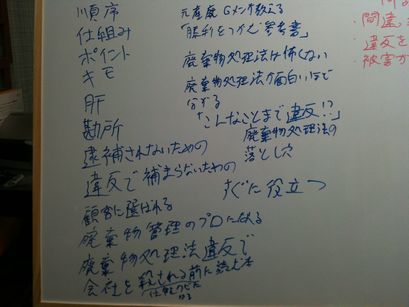 順序
仕組み
ポイント
キモ
肝
勘所
逮捕されないための
違反で捕まらないための
顧客に選ばれる
廃棄物管理のプロになれる
廃棄物処理法違反で
会社を殺される前に読む法
元産廃Gメンが教える
「勝利をつかむ参考書」
廃棄物処理法は怖くない
廃棄物処理法が面白いほど
分かる
「こんなことまで違反!?」
廃棄物処理法の
落とし穴
すぐに役立つ
間違
・違反を
・被害が